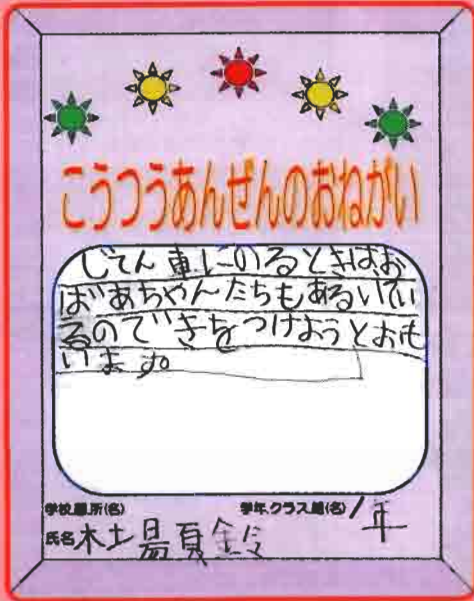 こうつうあんぜんのおねがい
じてん車にのるときは、お
ばあちゃんたちもあるいてい
るのできをつけようとおも
います。
学校園所(名)
学年クラス組(名)1年
氏名 杜 夏鈴